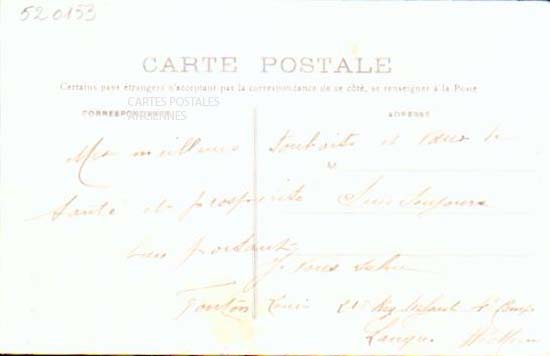 520153
CARTE POSTALE
Certains pays étrangers n'acceptant pas la correspondance de ce côté, se renseigner à la Poste
CARTES POSTALES
ANCIENNES
CORRESPONDANCE
ADRESSE
M
Mes meilleurs souhaits et vœux de
santé et de prospérité Suis toujours
bien portant
Je vous salue
Tonton Louis 21e Reg
Langres